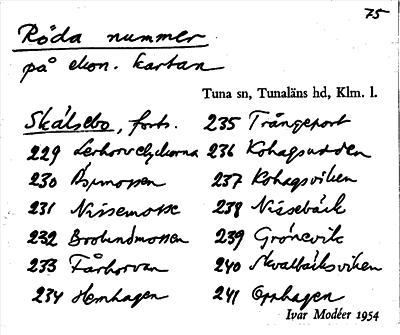 75
Röda nummer
på ekon. kartan
Tuna sn, Tunaläns hd, Klm. l.
Skälsebo, forts.
229
230 Äspmossen
231 Nissemosse
232
233 Fårhorvan
234 Hemhagen
235 Trångeport
236 Kohagsudden
237 Kohagsviken
238 Nissebäck
239 Grönevik
240 Skvalbäcksviken
241 Opphagen
Ivar Modéer 1954